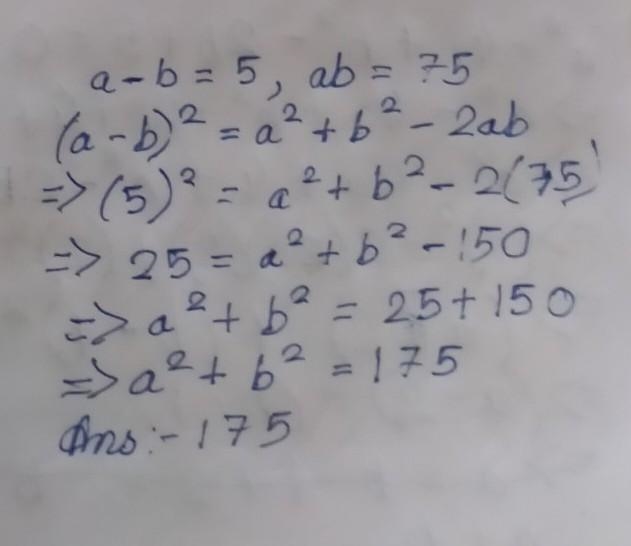 a - b = 5, ab = 75
(a - b)² = a² + b² - 2ab
=> (5)² = a² + b² - 2(75)
=> 25 = a² + b² - 150
=> a² + b² = 25 + 150
=> a² + b² = 175
Ans :- 175